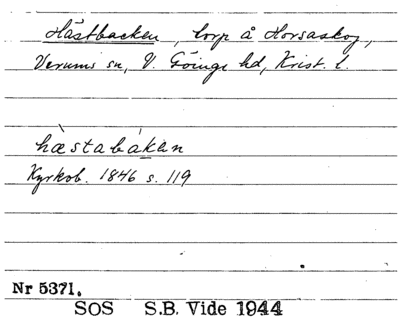 Hästbacken, torp å Horsaskog,
Verums sn, V. Göinge hd, Krist. l.
hæ̀stabákan
Kyrkob. 1846 s. 119
Nr 5371.
SOS S.B. Vide 1944